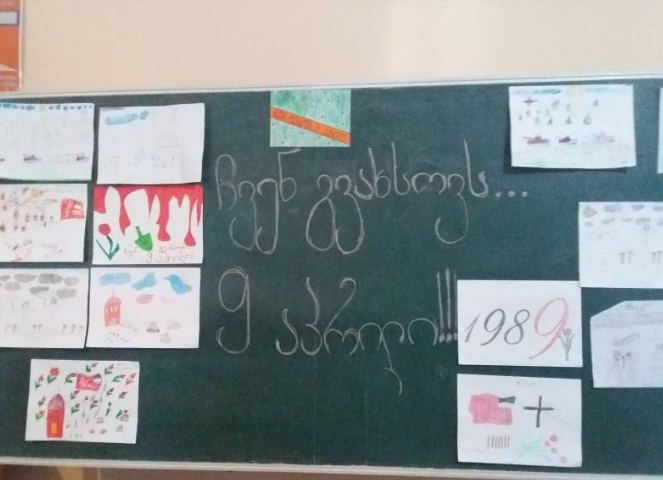 ჩვენ გვახსოვს...
9 აპრილი!!!
1989